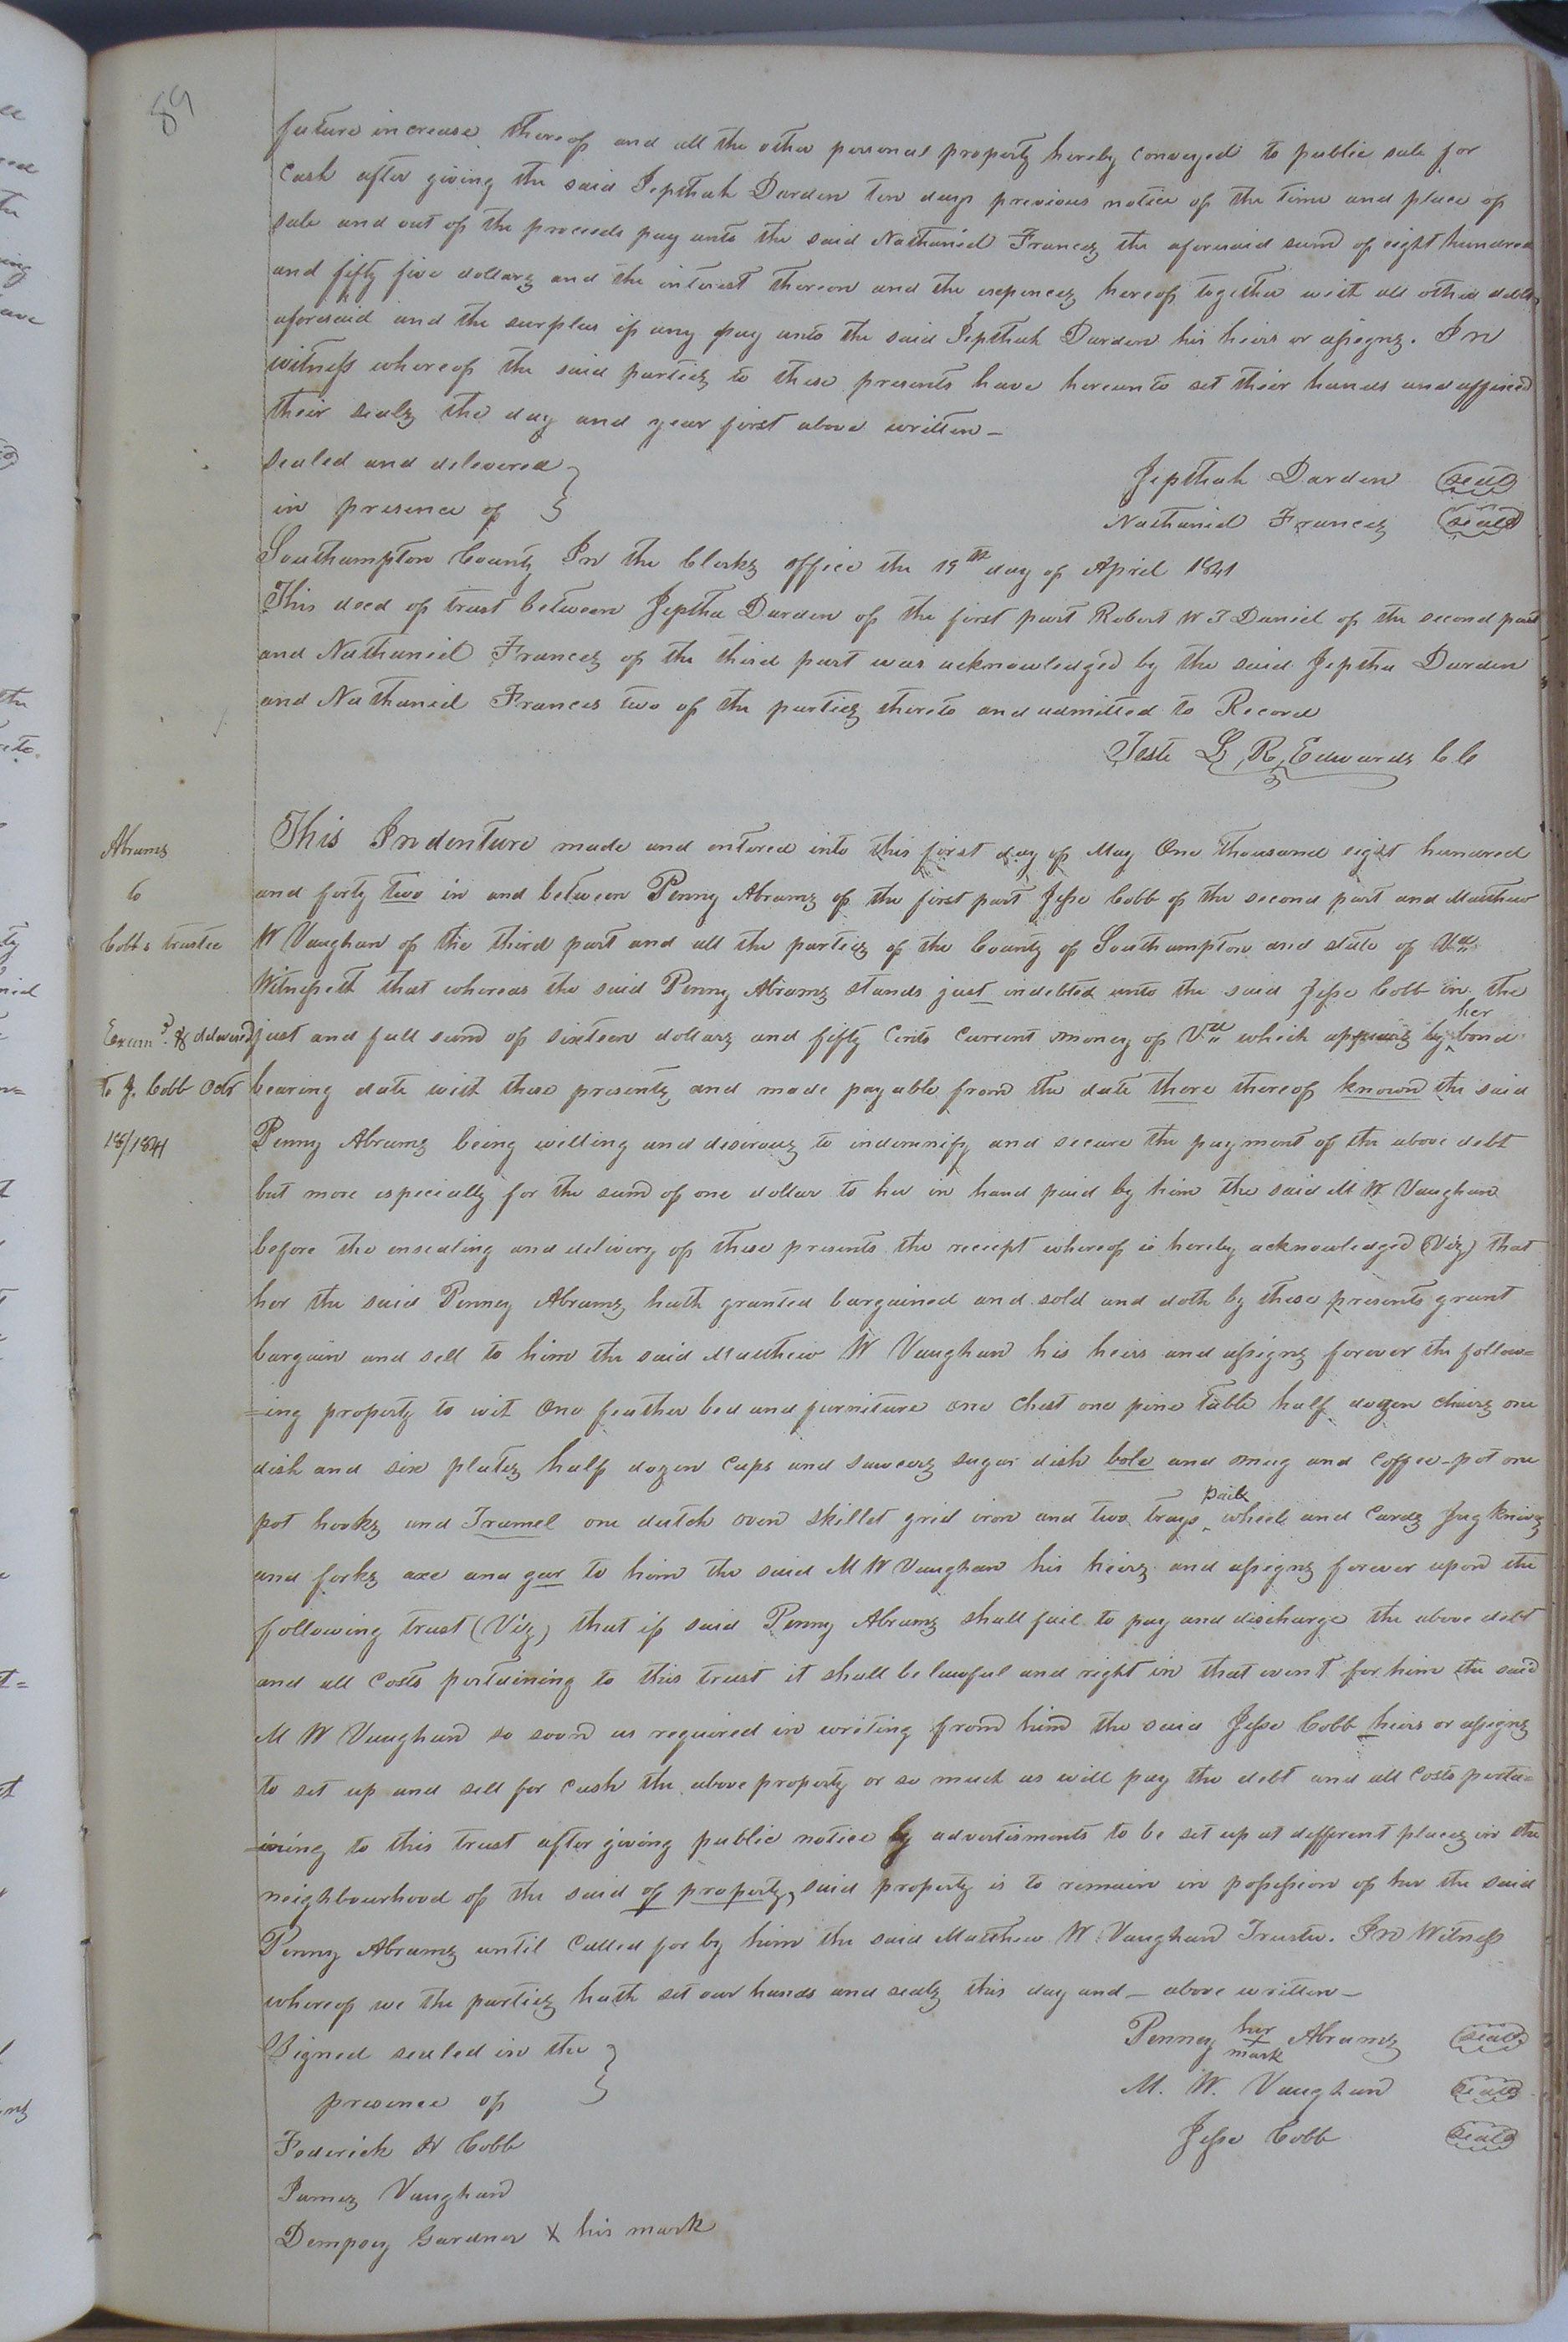 89
future increase thereof and all the other personal property hereby conveyed to public sale for
cash after giving the said Jepthah Darden ten days previous notice of the time and place of
sale and out of the proceeds pay unto the said Nathaniel Francis the aforesaid sum of eight hundred
and fifty five dollars and the interest thereon and the expences hereof together with all other debts
aforesaid and the surplus if any pay unto the said Jepthah Darden his heirs or assigns. In
witness whereof the said parties to these presents have hereunto set their hands and affixed
their seals the day and year first above written
Sealed and delivered
in presence of
Jepthah Darden seal
Nathaniel Francis seal
Southampton County In the Clerks office the 19th day of April 1841
This deed of trust between Jeptha Darden of the first part Robert W T Daniel of the second part
and Nathaniel Francis of the third part was acknowledged by the said Jeptha Darden
and Nathaniel Francis two of the parties thereto and admitted to Record
Teste L. R. Edwards CC
Abrams
to
Cobbs trustee
Examd. & delivered
to J. Cobb Octr
18/1841
This Indenture made and entered into this first day of May One thousand eight hundred
and forty two in and between Penny Abrams of the first part Jesse Cobb of the second part and Matthew
W Vaughan of the third part and all the parties of the County of Southampton and state of Va
Witnesseth that whereas the said Penny Abrams stands just indebted unto the said Jesse Cobb in the
just and full sum of sixteen dollars and fifty Cents Current money of Va which appears by her bond
bearing date with these presents and made payable from the date there thereof known the said
Penny Abrams being willing and desirous to indemnify and secure the payment of the above debt
but more especially for the sum of one dollar to her in hand paid by him the said M W Vaughan
before the ensealing and delivery of these presents the receipt whereof is hereby acknowledged (Viz) that
her the said Penney Abrams hath granted bargained and sold and doth by these presents grant
bargain and sell to him the said Matthew W Vaughan his heirs and assigns forever the follow=
=ing property to wit One feather bed and furniture one Chest one pine Table half dozen chairs one
dish and six plates half dozen Cups and sawcers sugar dish bole and mug and Coffee-pot one
pot hooks and Tramel one dutch oven skillet grid iron and two trays pails wheel and Cards Jug knives
and forks axe and gar to him the said M W Vaughan his heirs and assigns forever upon the
following trust (Viz) that if said Penny Abrams shall fail to pay and discharge the above debt
and all Costs pertaining to this trust it shall be lawful and right in that event for him the said
M W Vaughan so soon as required in writing from him the said Jesse Cobb heirs or assigns
to set up and sell for Cash the above property or so much as will pay the debt and all Costs perta=
=ining to this trust after giving public notice by advertisments to be set up at different places in the
neighbourhood of the said of property, said property is to remain in possession of her the said
Penny Abrams until Called for by him the said Matthew W Vaughan Trustee. In Witness
whereof we the parties hath set our hands and seals this day and — above written —
Signed sealed in the
presence of
Federick H Cobb
James Vaughan
Dempsey Gardner X his mark
Penney her X mark Abrams seal
M. W. Vaughan seal
Jesse Cobb seal